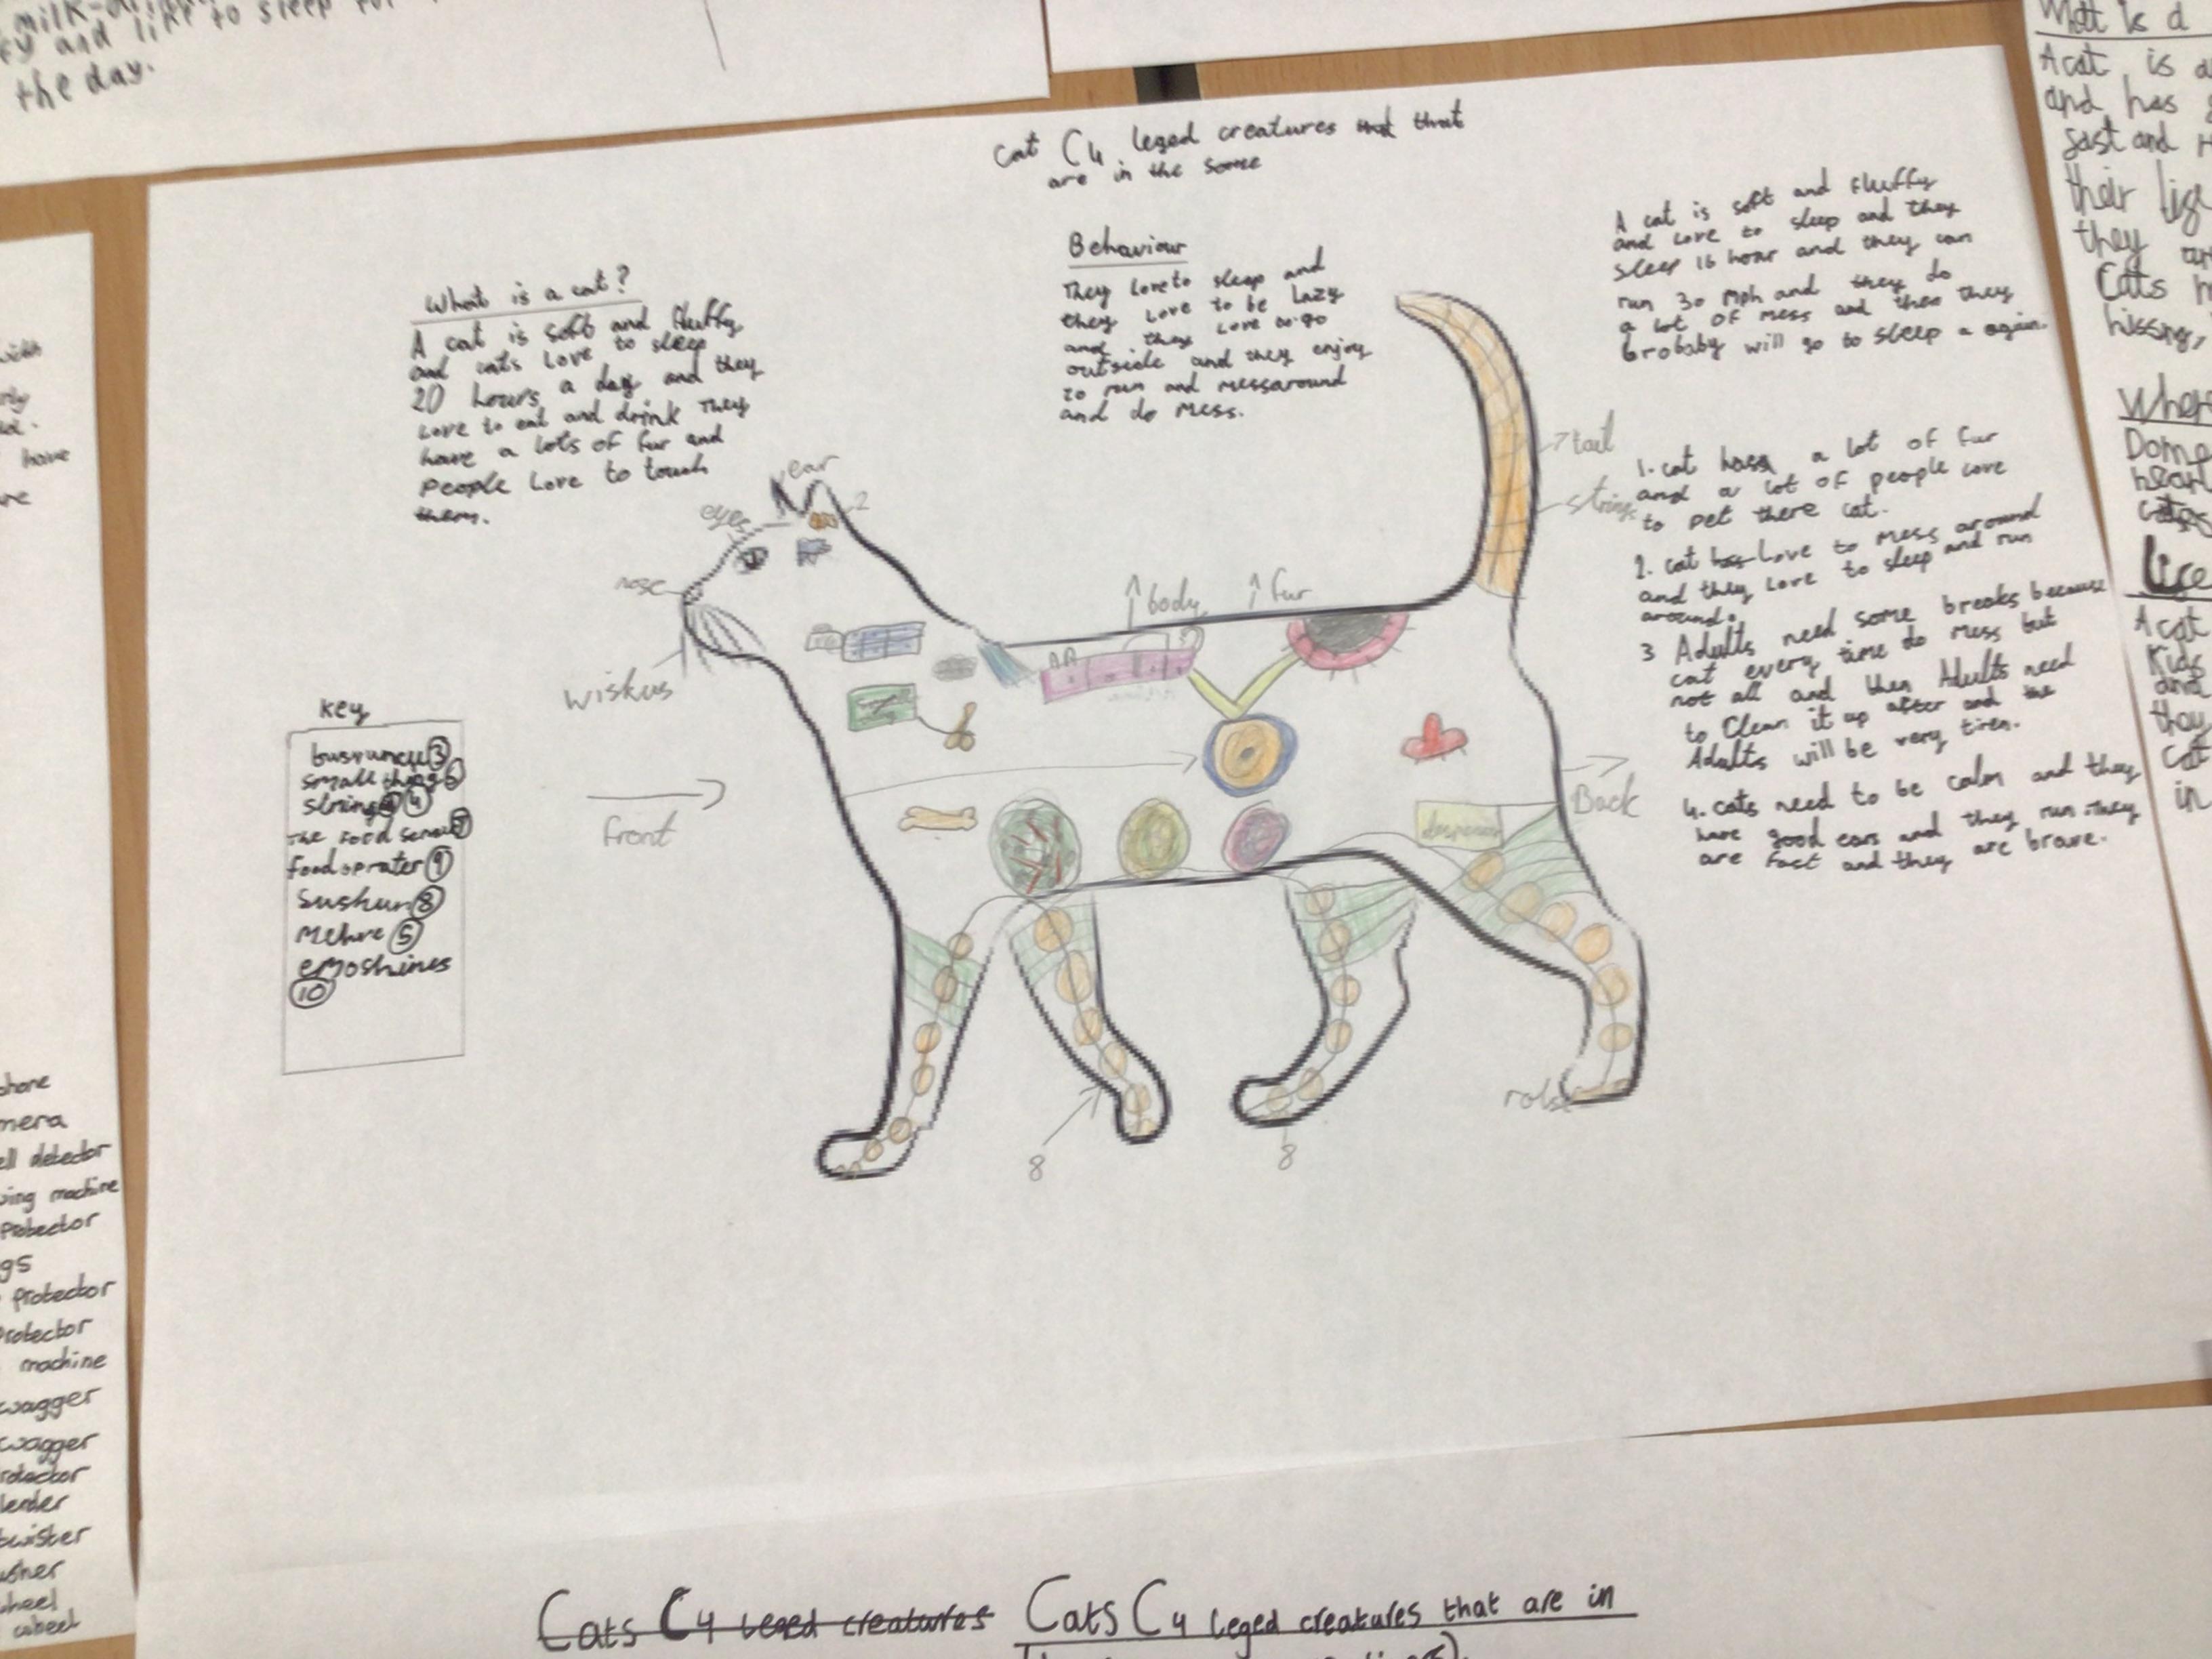 and like to sleep
the day.
cat (4 leged creatures that that
are in the some
What is a cat?
A cat is soft and fluffy
and cats Love to sleep
20 hours a day and they
Love to eat and drink They
have a lots of fur and
People Love to touch
them.
Behaviour
They Love to sleep and
they Love to be Lazy
and they Love to go
outside and they enjoy
to run and messaround
and do Mess.
A cat is soft and fluffy
and Love to sleep and they
sleep 16 hour and they can
run 30 mph and they do
a lot of mess and then they
brobaby will go to sleep a again.
1. cat hass a lot of fur
and a lot of people love
to pet there cat.
2. cat has Love to Mess around
and they Love to sleep and run
around.
3 Adults need some breaks because
cat every time do Mess but
not all and then Adults need
to Clean it up after and the
Adults will be very tiren.
4. cats need to be calm and they
have good ears and they run. They
are Fact and they are brave.
ear
2
eyes
nose
wiskus
body
fur
tail
string
front
Back
8
8
key
3
small things 6
string 4
the Food 7
food oprater 9
Sushun 8
Mehre 5
emoshines
10
have
phone
detector
machine
Protector
protector
machine
wagger
wagger
What is a
A cat is a
and has
their
they
Cats
hissing,
Where
A cat
Kids
and
they
Cat
in
Cats (4 leged creatures Cats (4 leged creatures that are in